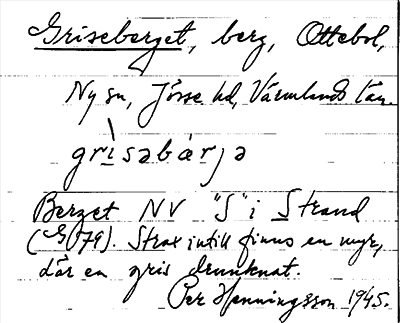 Griseberget, berg, Ottebol,
Ny sn, Jösse hd, Värmlands län.
grìsəbàrjə
Berget NV "S" i Strand
(G079). Strax intill finns en myr,
där en gris drunknat.
Per Henningsson 1945.